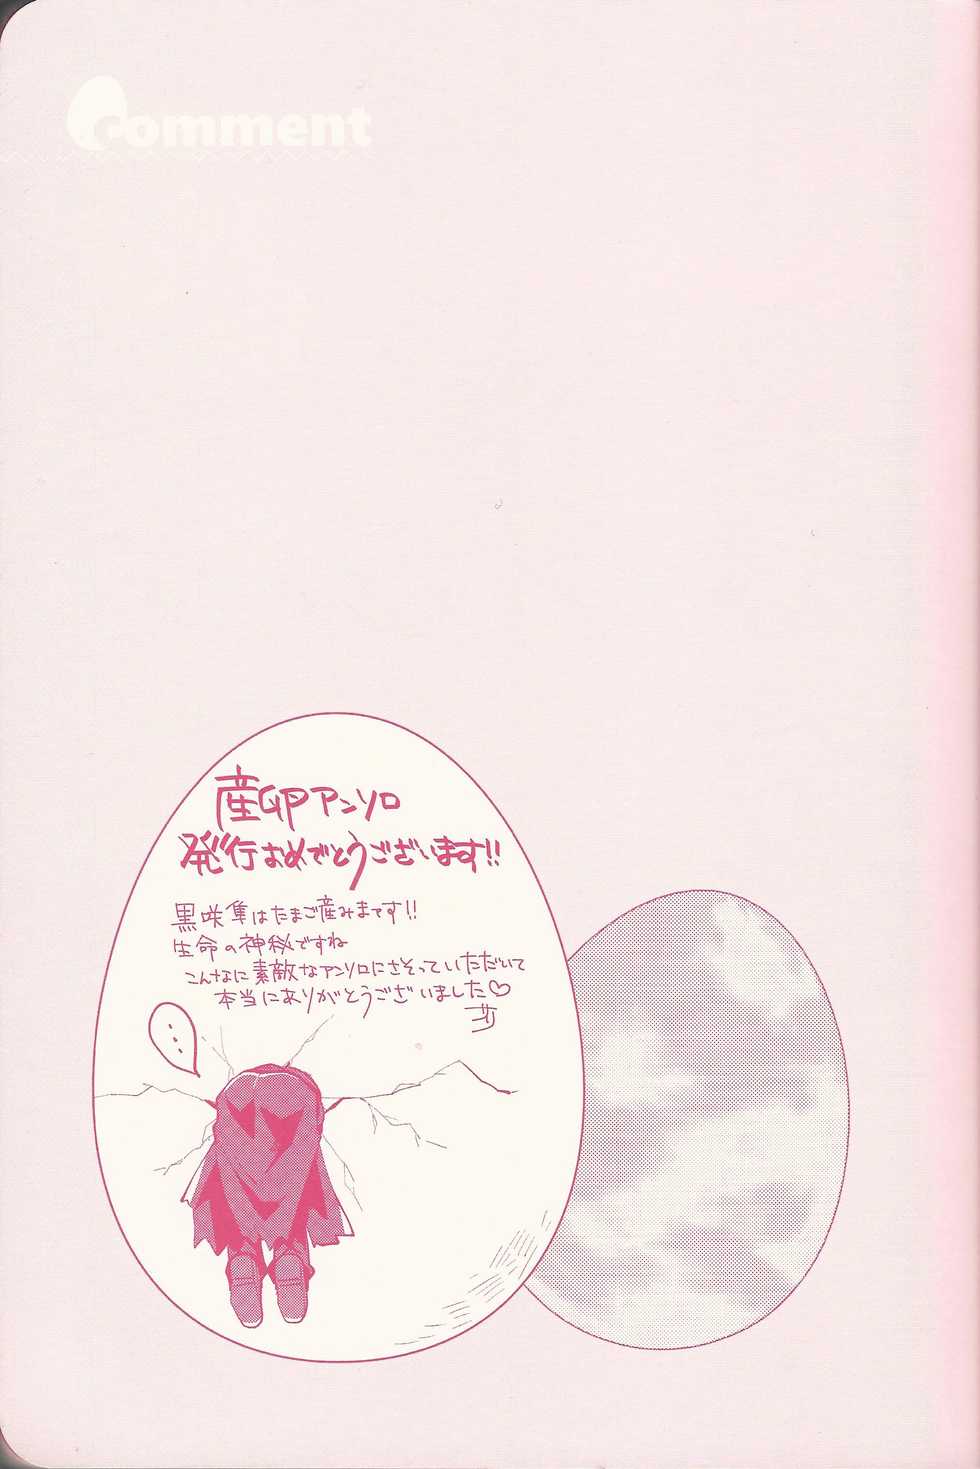 Comment
産卵アンソロ
発行おめでとうございます!!
黒咲隼はたまご産みます!!
生命の神秘ですね
こんなに素敵なアンソロにさそっていただいて
本当にありがとうございました♡
…